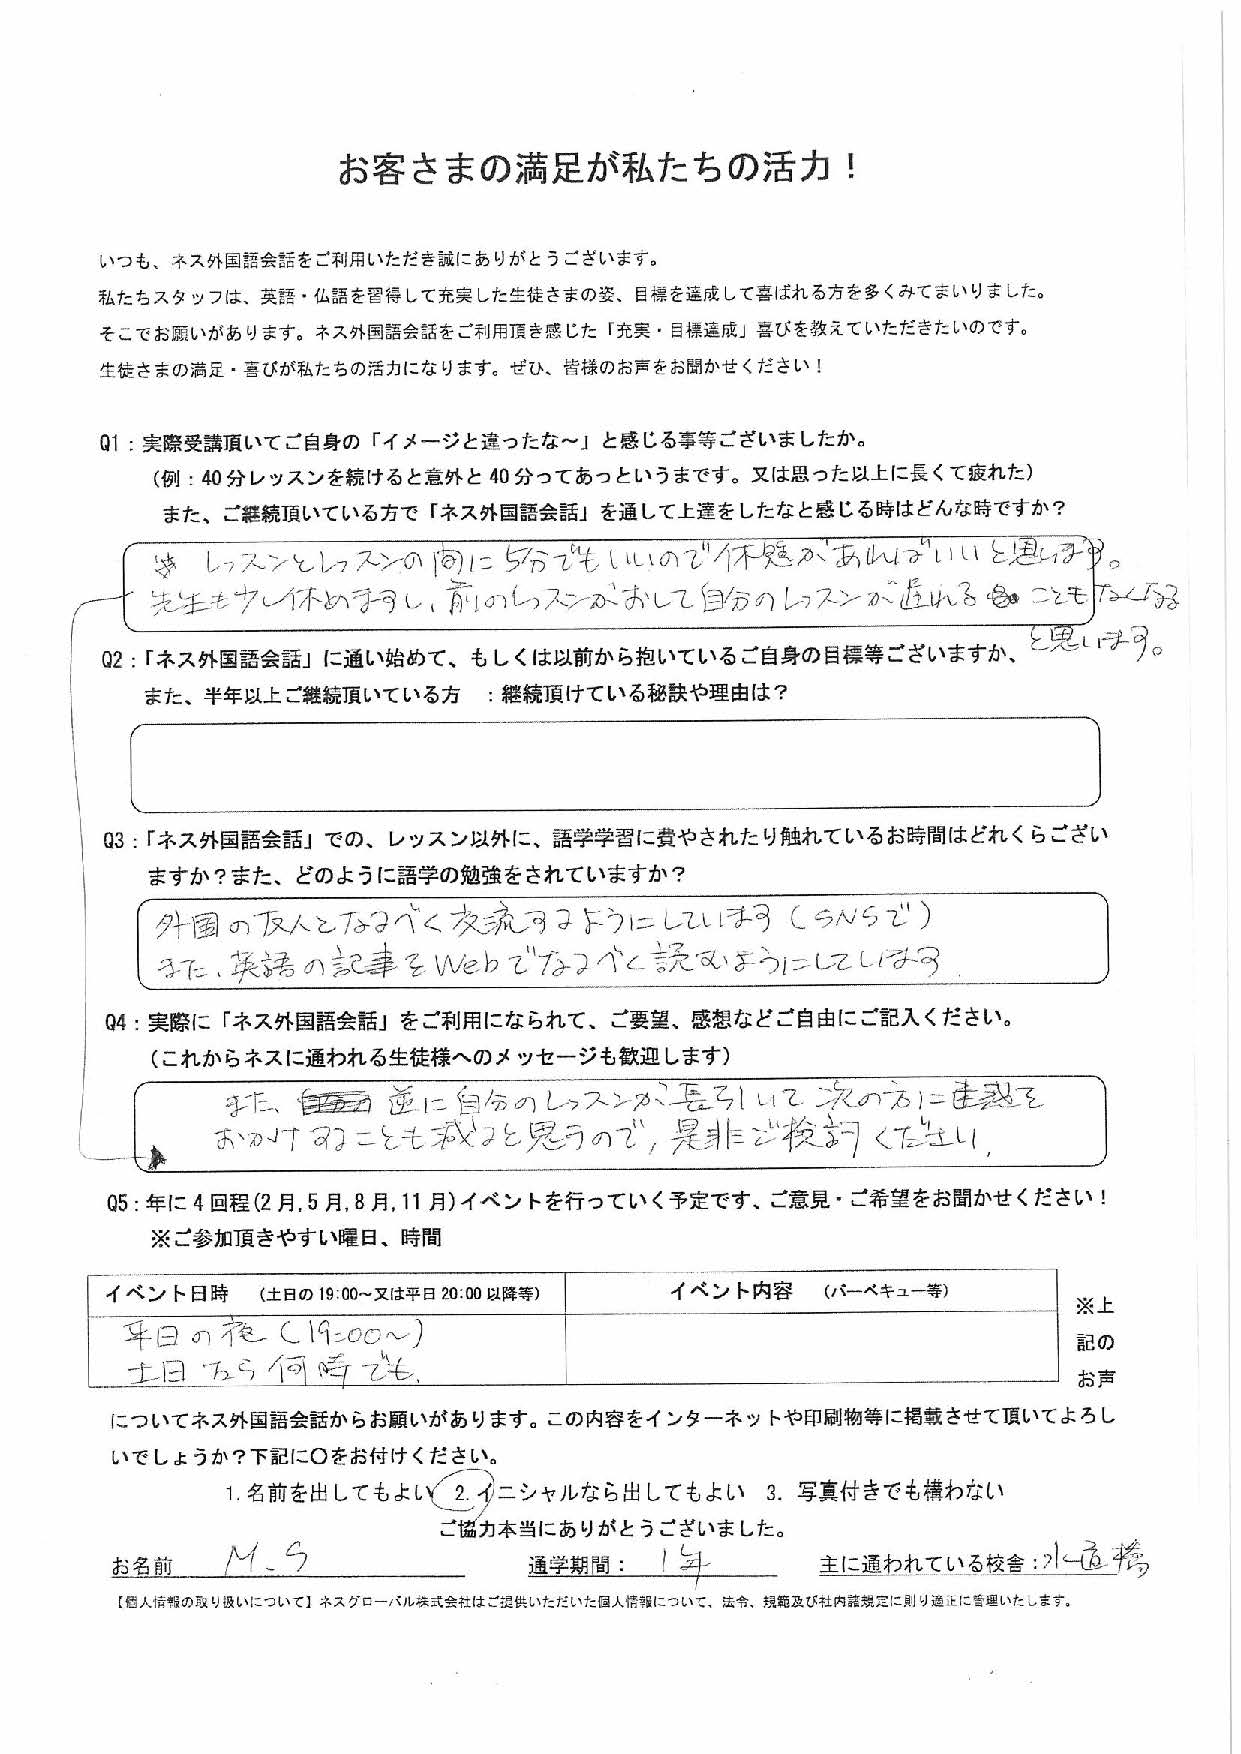 お客さまの満足が私たちの活力！
いつも、ネス外国語会話をご利用いただき誠にありがとうございます。
私たちスタッフは、英語・仏語を習得して充実した生徒さまの姿、目標を達成して喜ばれる方を多くみてまいりました。
そこでお願いがあります。ネス外国語会話をご利用頂き感じた「充実・目標達成」喜びを教えていただきたいのです。
生徒さまの満足・喜びが私たちの活力になります。ぜひ、皆様のお声をお聞かせください！
Q1：実際受講頂いてご自身の「イメージと違ったな～」と感じる事等ございましたか。
（例：40分レッスンを続けると意外と40分ってあっというまです。又は思った以上に長くて疲れた）
また、ご継続頂いている方で「ネス外国語会話」を通して上達をしたなと感じる時はどんな時ですか？
レッスンとレッスンの間に5分でもいいので休憩があればいいと思います。
先生も少し休めますし、前のレッスンがおして自分のレッスンが遅れることもなくなる
と思います。
Q2：「ネス外国語会話」に通い始めて、もしくは以前から抱いているご自身の目標等ございますか、
また、半年以上ご継続頂いている方　：継続頂けている秘訣や理由は？
Q3：「ネス外国語会話」での、レッスン以外に、語学学習に費やされたり触れているお時間はどれくらござい
ますか？また、どのように語学の勉強をされていますか？
外国の友人となるべく交流するようにしています（SNSで）
また、英語の記事をWebでなるべく読むようにしています.
Q4：実際に「ネス外国語会話」をご利用になられて、ご要望、感想などご自由にご記入ください。
（これからネスに通われる生徒様へのメッセージも歓迎します）
また、逆に自分のレッスンが長引いて次の方に迷惑を
おかけすることも減ると思うので、是非ご検討ください.
Q5：年に4回程(2月,5月,8月,11月)イベントを行っていく予定です、ご意見・ご希望をお聞かせください！
※ご参加頂きやすい曜日、時間
イベント日時　（土日の19:00～又は平日20:00以降等）　イベント内容　（バーベキュー等）
平日の夜（19:00～）
土日なら何時でも.
※上
記の
お声
についてネス外国語会話からお願いがあります。この内容をインターネットや印刷物等に掲載させて頂いてよろし
いでしょうか？下記に〇をお付けください。
1.名前を出してもよい　2.イニシャルなら出してもよい　3. 写真付きでも構わない
ご協力本当にありがとうございました。
お名前　M.S　通学期間：1年　主に通われている校舎：水道橋
【個人情報の取り扱いについて】ネスグローバル株式会社はご提供いただいた個人情報について、法令、規範及び社内諸規定に則り適正に管理いたします。